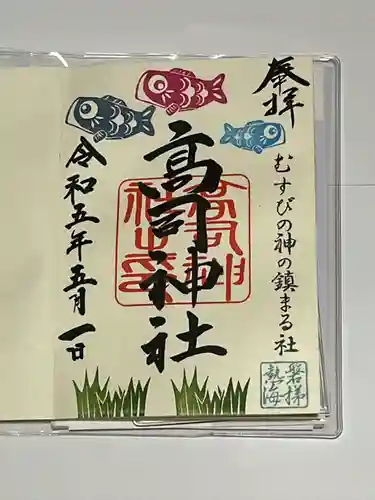 奉拝
むすびの神の鎮まる社
高司神社
令和五年五月一日
磐梯
熱海